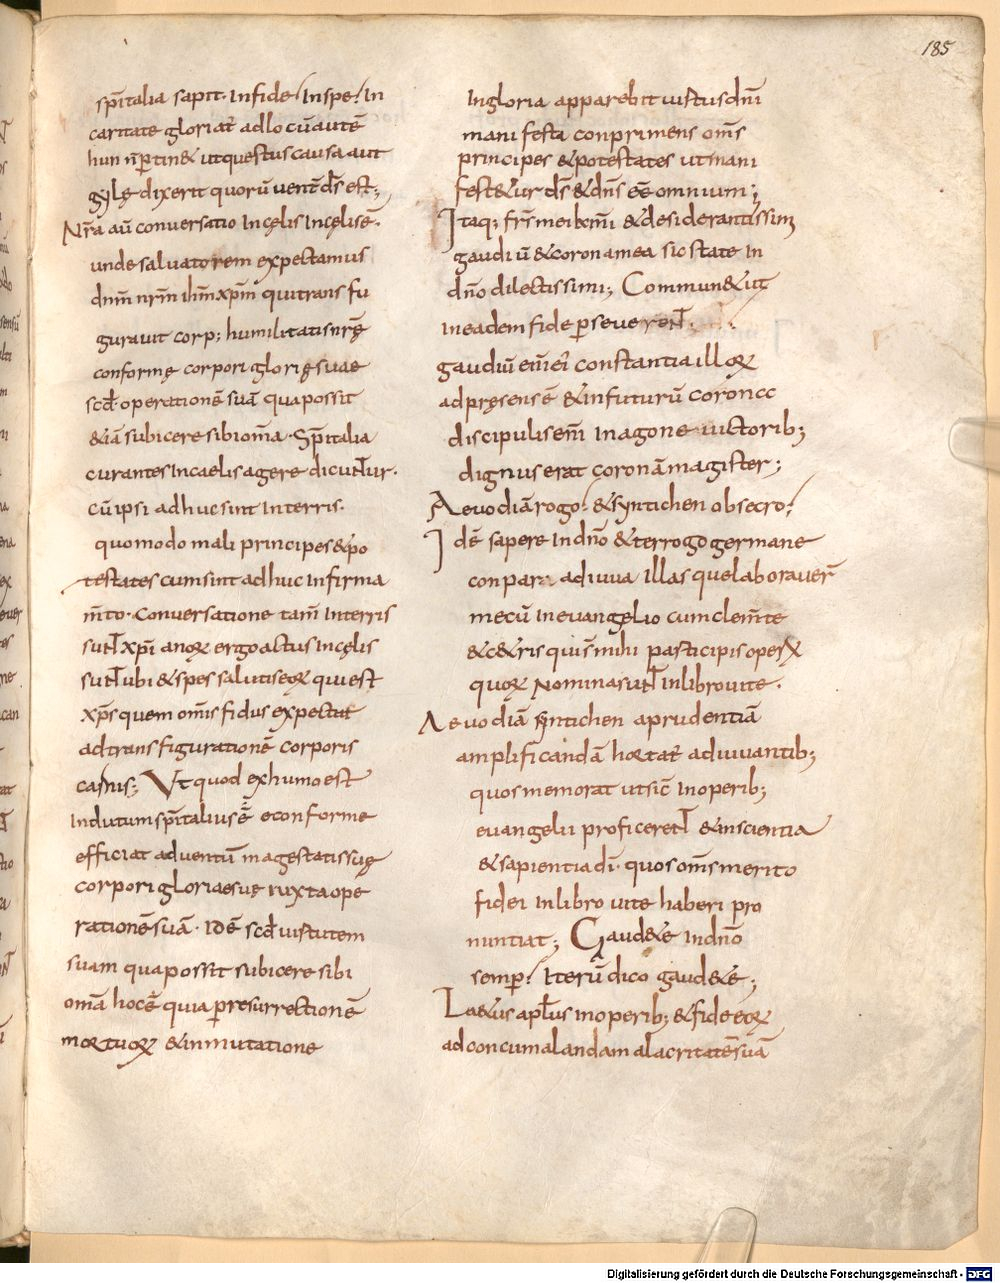 185
sp̄italia sapit· Infide/ Inspe/ In
caritate gloriat̄ adlo cū autē
hun n̄ ꝑtin& utquestus causa aut
gylę dixerit quorū vent̄ d̄s est;
Nr̄a aū conversatio Incęlis Incęlis ē·
unde salvatorem expectamus
dn̄m nr̄m ih̄m xp̄m qui transfu
guravit corp; humilitatis nr̄ę
conformę corpori glorię suae
scd̄· operationē suā qua possit
&iā subicere sibi om̄a· Sp̄italia
curantes In caelis agere dicuntur·
cū ipsi adhuc sint Interris·
quomodo mali principes & po
testates cum sint adhuc Infirma
m̄to· Conversatione tam̄ Interris
sunt xp̄i anoꝝ ergo altus Incęlis
sunt ubi & spes salutis eoꝝ qui est
xp̄s quem om̄is fidus expectat
ad transfigurationē corporis
carnis; Vt quod exhumo est
Indutum sp̄italius ē̄ econforme
efficiat adventū magestatis suę
corpori gloriae suę iuxta ope
rationē suā· Idē scd̄ uistutem
suam qua possit subicere sibi
om̄a hoc ē̄ quia ꝑ resurrectionē
mortuoꝝ & inmutatione
Ingloria apparebit uistus dn̄i
mani festa conprimens om̄s
principes & potestates ut mani
fest&ur d̄s & dn̄s eē omnium;
Itaq; frs̄ mei kmī & desiderantissim
gaudiū & corona mea sic state In
dn̄o dilectissimi; Commun& ut
In eadem fide ꝑseverent·
gaudiū enī ei constantia illoꝝ
ad pręsens ē & in futurū coronec
discipulis em̄ Inagone uictorib;
dignus erat coronā magister;
Aevodiā rogo/ & syntichen obsecro/
Idē sapere Indn̄o & terrogo germane
conpar adiuva Illas que laboraver̄
mecū Inevangelio cum clem̄te
& c&ris quis mihi pasticipis opes
quoꝝ Nomina sunt Inlibro vite·
Aevodiā syntichen aprudentiā
amplificandā hortat̄ adiuvantib;
quos memorat ut sic̄ Inoperib;
euangelii proficerent & inscientia
& sapientia dī· quos om̄s merito
fidei Inlibro vite haberi pro
nuntiat; Gaud&e Indn̄o
semper/ Iterū dico gaud&e;
La&us apl̄us inoperib; & fide eoꝝ
ad concumalandam alacritatē suā
Digitalisierung gefördert durch die Deutsche Forschungsgemeinschaft - DFG